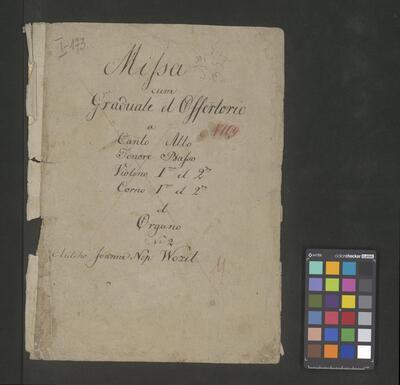 I-173
Missa
cum
Graduale et Offertorio
a
Canto Alto
Tenore Basso
Violino 1mo et 2do
Corno 1mo et 2do
et
Organo
No 2
Joanne Nep. Wozet
colorchecker